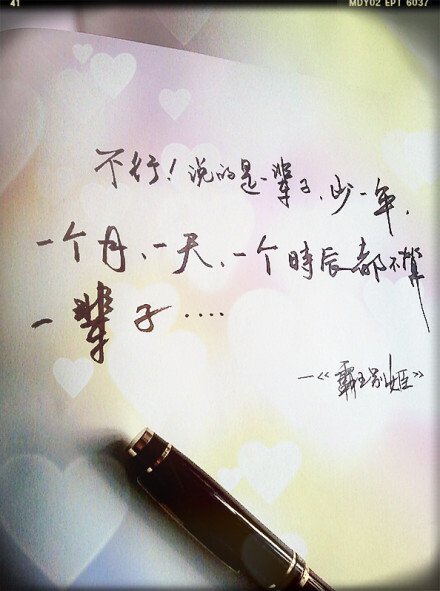 41 MDY02 EPT 6037
不行！说的是一辈子、少一年、
一个月、一天、一个時辰都不算
一辈子····
—《霸王别姬》